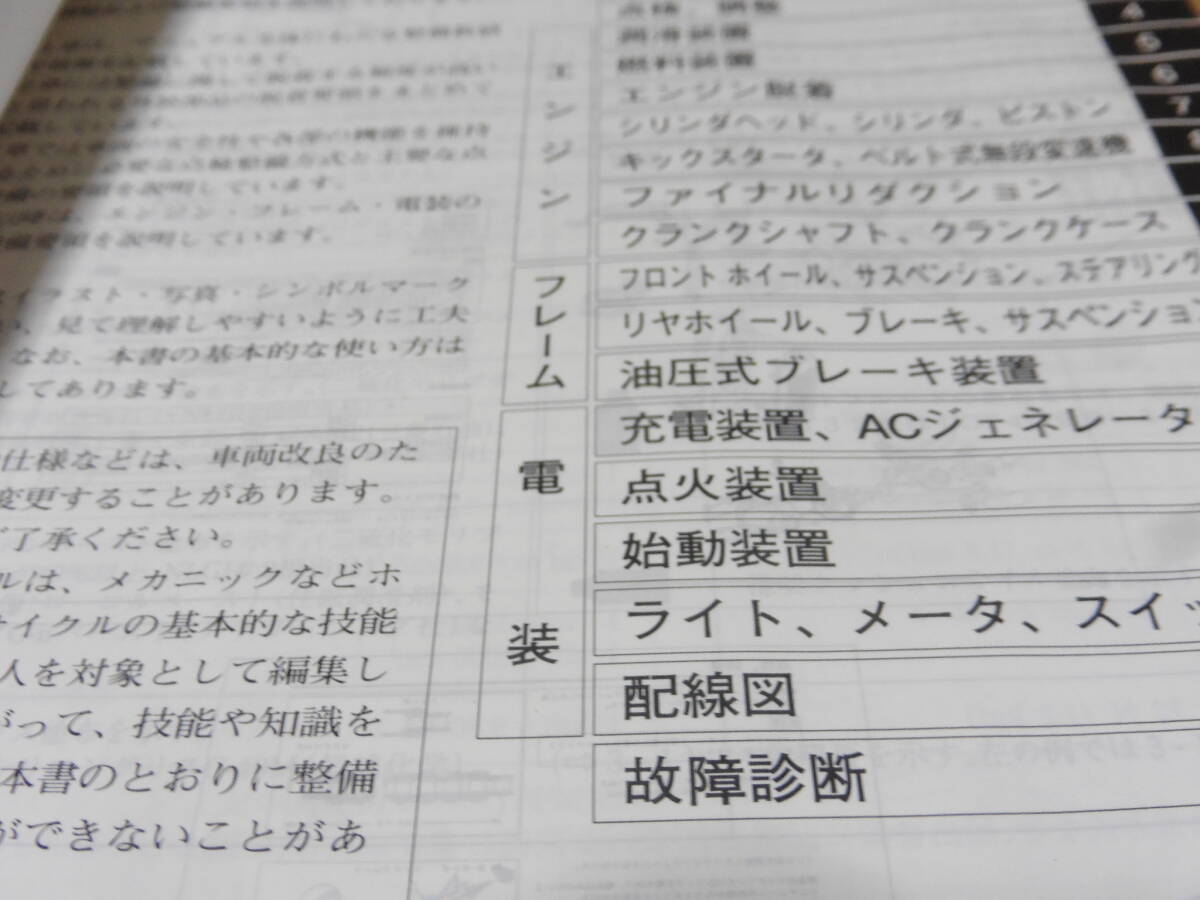 しています。
を説明しています。
エンジン・フレーム・電装の
を説明しています。
イラスト・写真・シンボルマーク
、見て理解しやすいように工夫
なお、本書の基本的な使い方は
してあります。
仕様などは、車両改良のた
変更することがあります。
ご了承ください。
ルは、メカニックなどホ
サイクルの基本的な技能
人を対象として編集し
がって、技能や知識を
本書のとおりに整備
ができないことがあ
点検、調整
エンジン
潤滑装置
燃料装置
エンジン脱着
シリンダヘッド、シリンダ、ピストン
キックスタータ、ベルト式無段変速機
ファイナルリダクション
クランクシャフト、クランクケース
フレーム
フロント ホイール、サスペンション、ステアリング
リヤホイール、ブレーキ、サスペンション
油圧式ブレーキ装置
電装
充電装置、ACジェネレータ
点火装置
始動装置
ライト、メータ、スイッ
配線図
故障診断
4
5
6
7
8